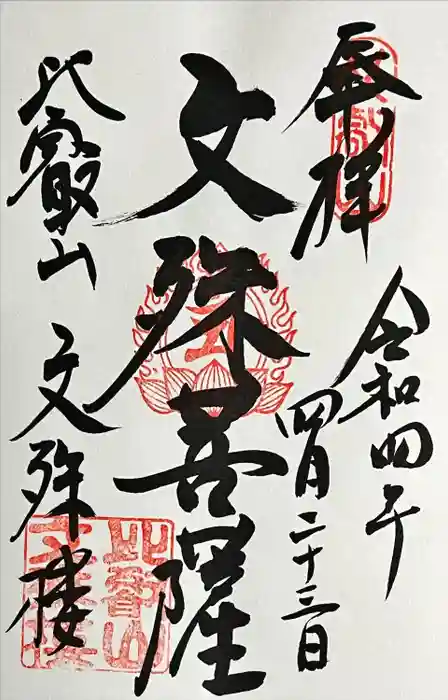 奉拝
令和四年
四月二十三日
文殊菩薩
比叡山
文殊楼
比叡山
文殊楼